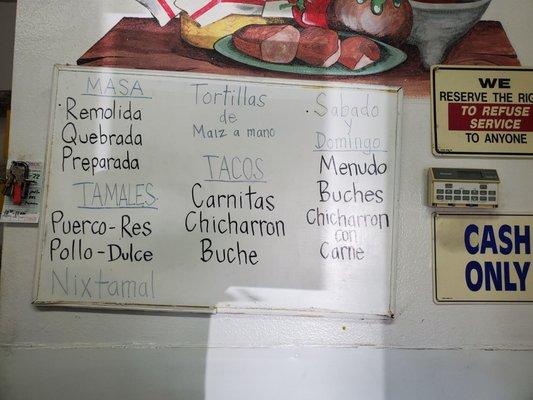 MASA
Remolida
Quebrada
Preparada
TAMALES
Puerco-Res
Pollo-Dulce
Nixtamal
Tortillas
de
Maiz a mano
TACOS
Carnitas
Chicharron
Buche
Sabado
y
Domingo
Menudo
Buches
Chicharron
con
Carne
WE
RESERVE THE RIG
TO REFUSE
SERVICE
TO ANYONE
CASH
ONLY